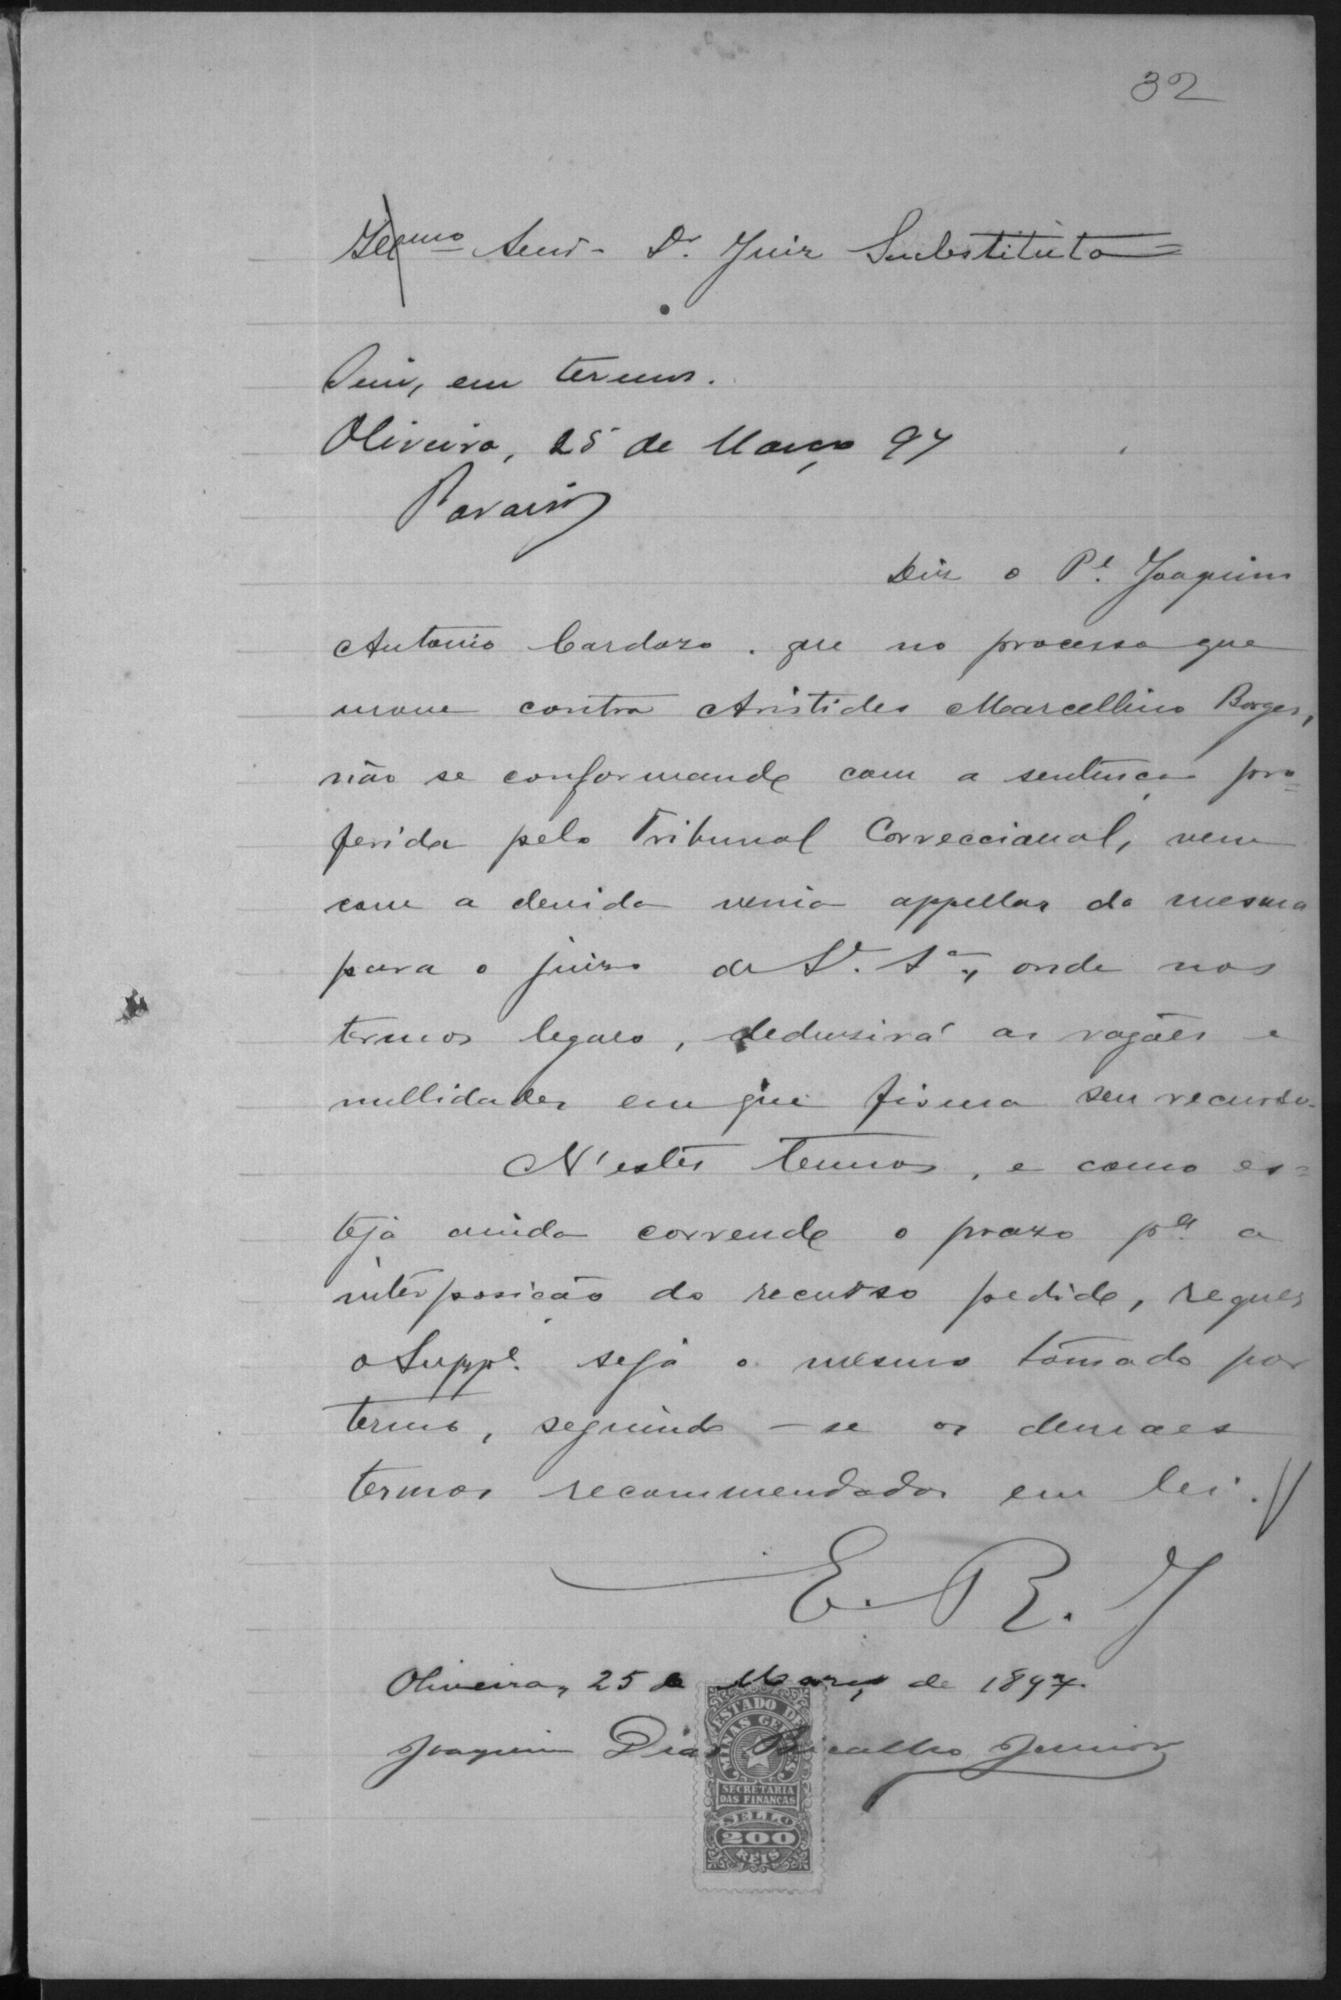 32
Illmo Senr Dr. Juiz Substituto
Sim, em termos.
Oliveira, 25 de Março 97
Diz o Pe. Joaquim
Antonio Cardozo, que no processo que
move contra Aristides Marcellino Borges,
não se conformando com a sentença pro=
ferida pelo Tribunal Correccional, vem
com a devida venia appellar da mesma
para o juizo de V. Sa., onde nos
termos legaes, dedusirá as rasões e
nullidades em que firma seu recurso.
N'estes termos, e como es=
teja ainda correndo o prazo pa. a
interposição do recurso pedido, requer
o Suppe. seja o mesmo tomado por
termo, seguindo-se os demaes
termos recommendados em lei.//
E. R. J
Oliveira, 25 de Março de 1897.
Joaquim Dias Bicalho Junior
ESTADO DE
MINAS GERAES
SECRETARIA
DAS FINANÇAS
SELLO
200
REIS